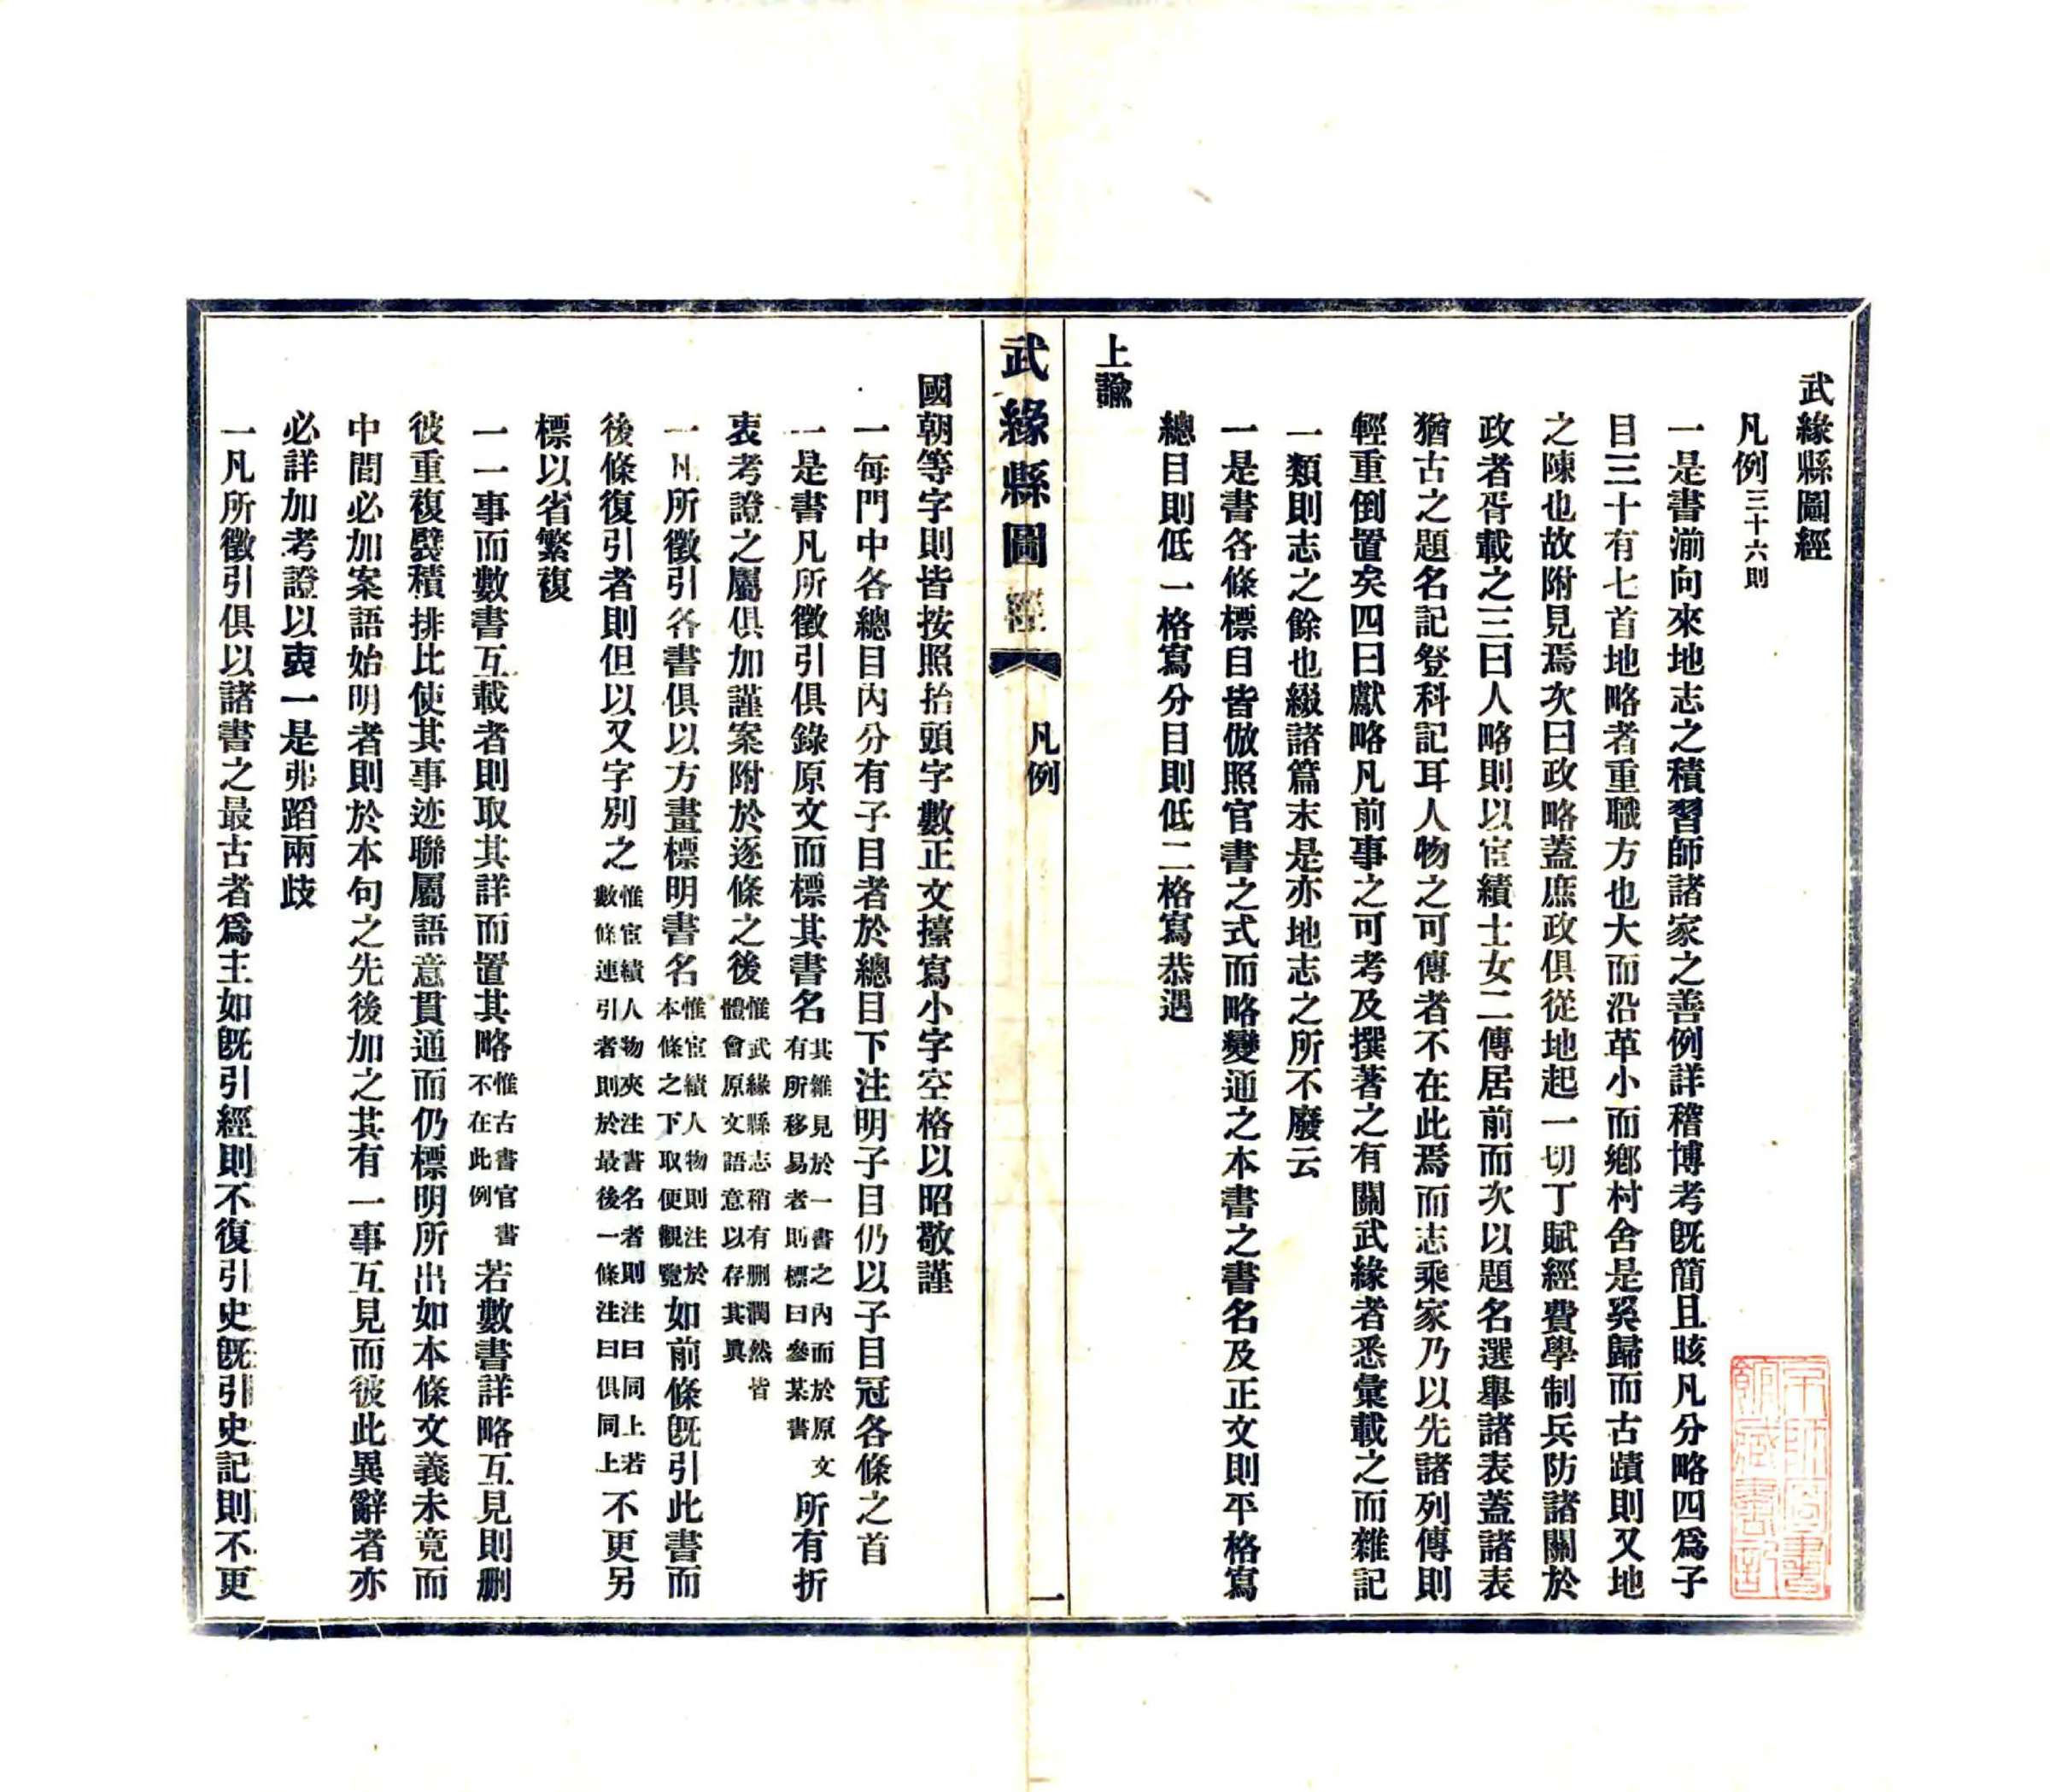 武緣縣圖經
凡例三十六則
一是書湔向來地志之積習師諸家之善例詳稽博考旣簡且晐凡分略四爲子
目三十有七首地略者重職方也大而沿革小而鄕村舍是奚歸而古蹟則又地
之陳也故附見焉次曰政略蓋庶政俱從地起一切丁賦經費學制兵防諸關於
政者胥載之三曰人略則以宦績士女二傳居前而次以題名選舉諸表蓋諸表
猶古之題名記登科記耳人物之可傳者不在此焉而志乘家乃以先諸列傳則
輕重倒置矣四曰獻略凡前事之可考及撰著之有關武緣者悉彙載之而雜記
一類則志之餘也綴諸篇末是亦地志之所不廢云
一是書各條標目皆倣照官書之式而略變通之本書之書名及正文則平格寫
總目則低一格寫分目則低二格寫恭遇
上諭
武緣縣圖經
凡例
一
國朝等字則皆按照抬頭字數正文擡寫小字空格以昭敬謹
一每門中各總目內分有子目者於總目下注明子目仍以子目冠各條之首
一是書凡所徵引俱錄原文而標其書名其雜見於一書之內而於原文有所移易者則標曰參某書所有折
衷考證之屬俱加謹案附於逐條之後惟武緣縣志稍有删潤然皆體會原文語意以存其眞
一凡所徵引各書俱以方畫標明書名惟宦績人物則注於本條之下取便觀覽如前條旣引此書而
後條復引者則但以又字別之惟宦績人物夾注書名者則注曰同上若數條連引者則於最後一條注曰俱同上不更另
標以省繁複
一一事而數書互載者則取其詳而置其略惟古書官書不在此例若數書詳略互見則删
彼重複襞積排比使其事迹聯屬語意貫通而仍標明所出如本條文義未竟而
中間必加案語始明者則於本句之先後加之其有一事互見而彼此異辭者亦
必詳加考證以衷一是弗蹈兩歧
一凡所徵引俱以諸書之最古者爲主如旣引經則不復引史旣引史記則不更